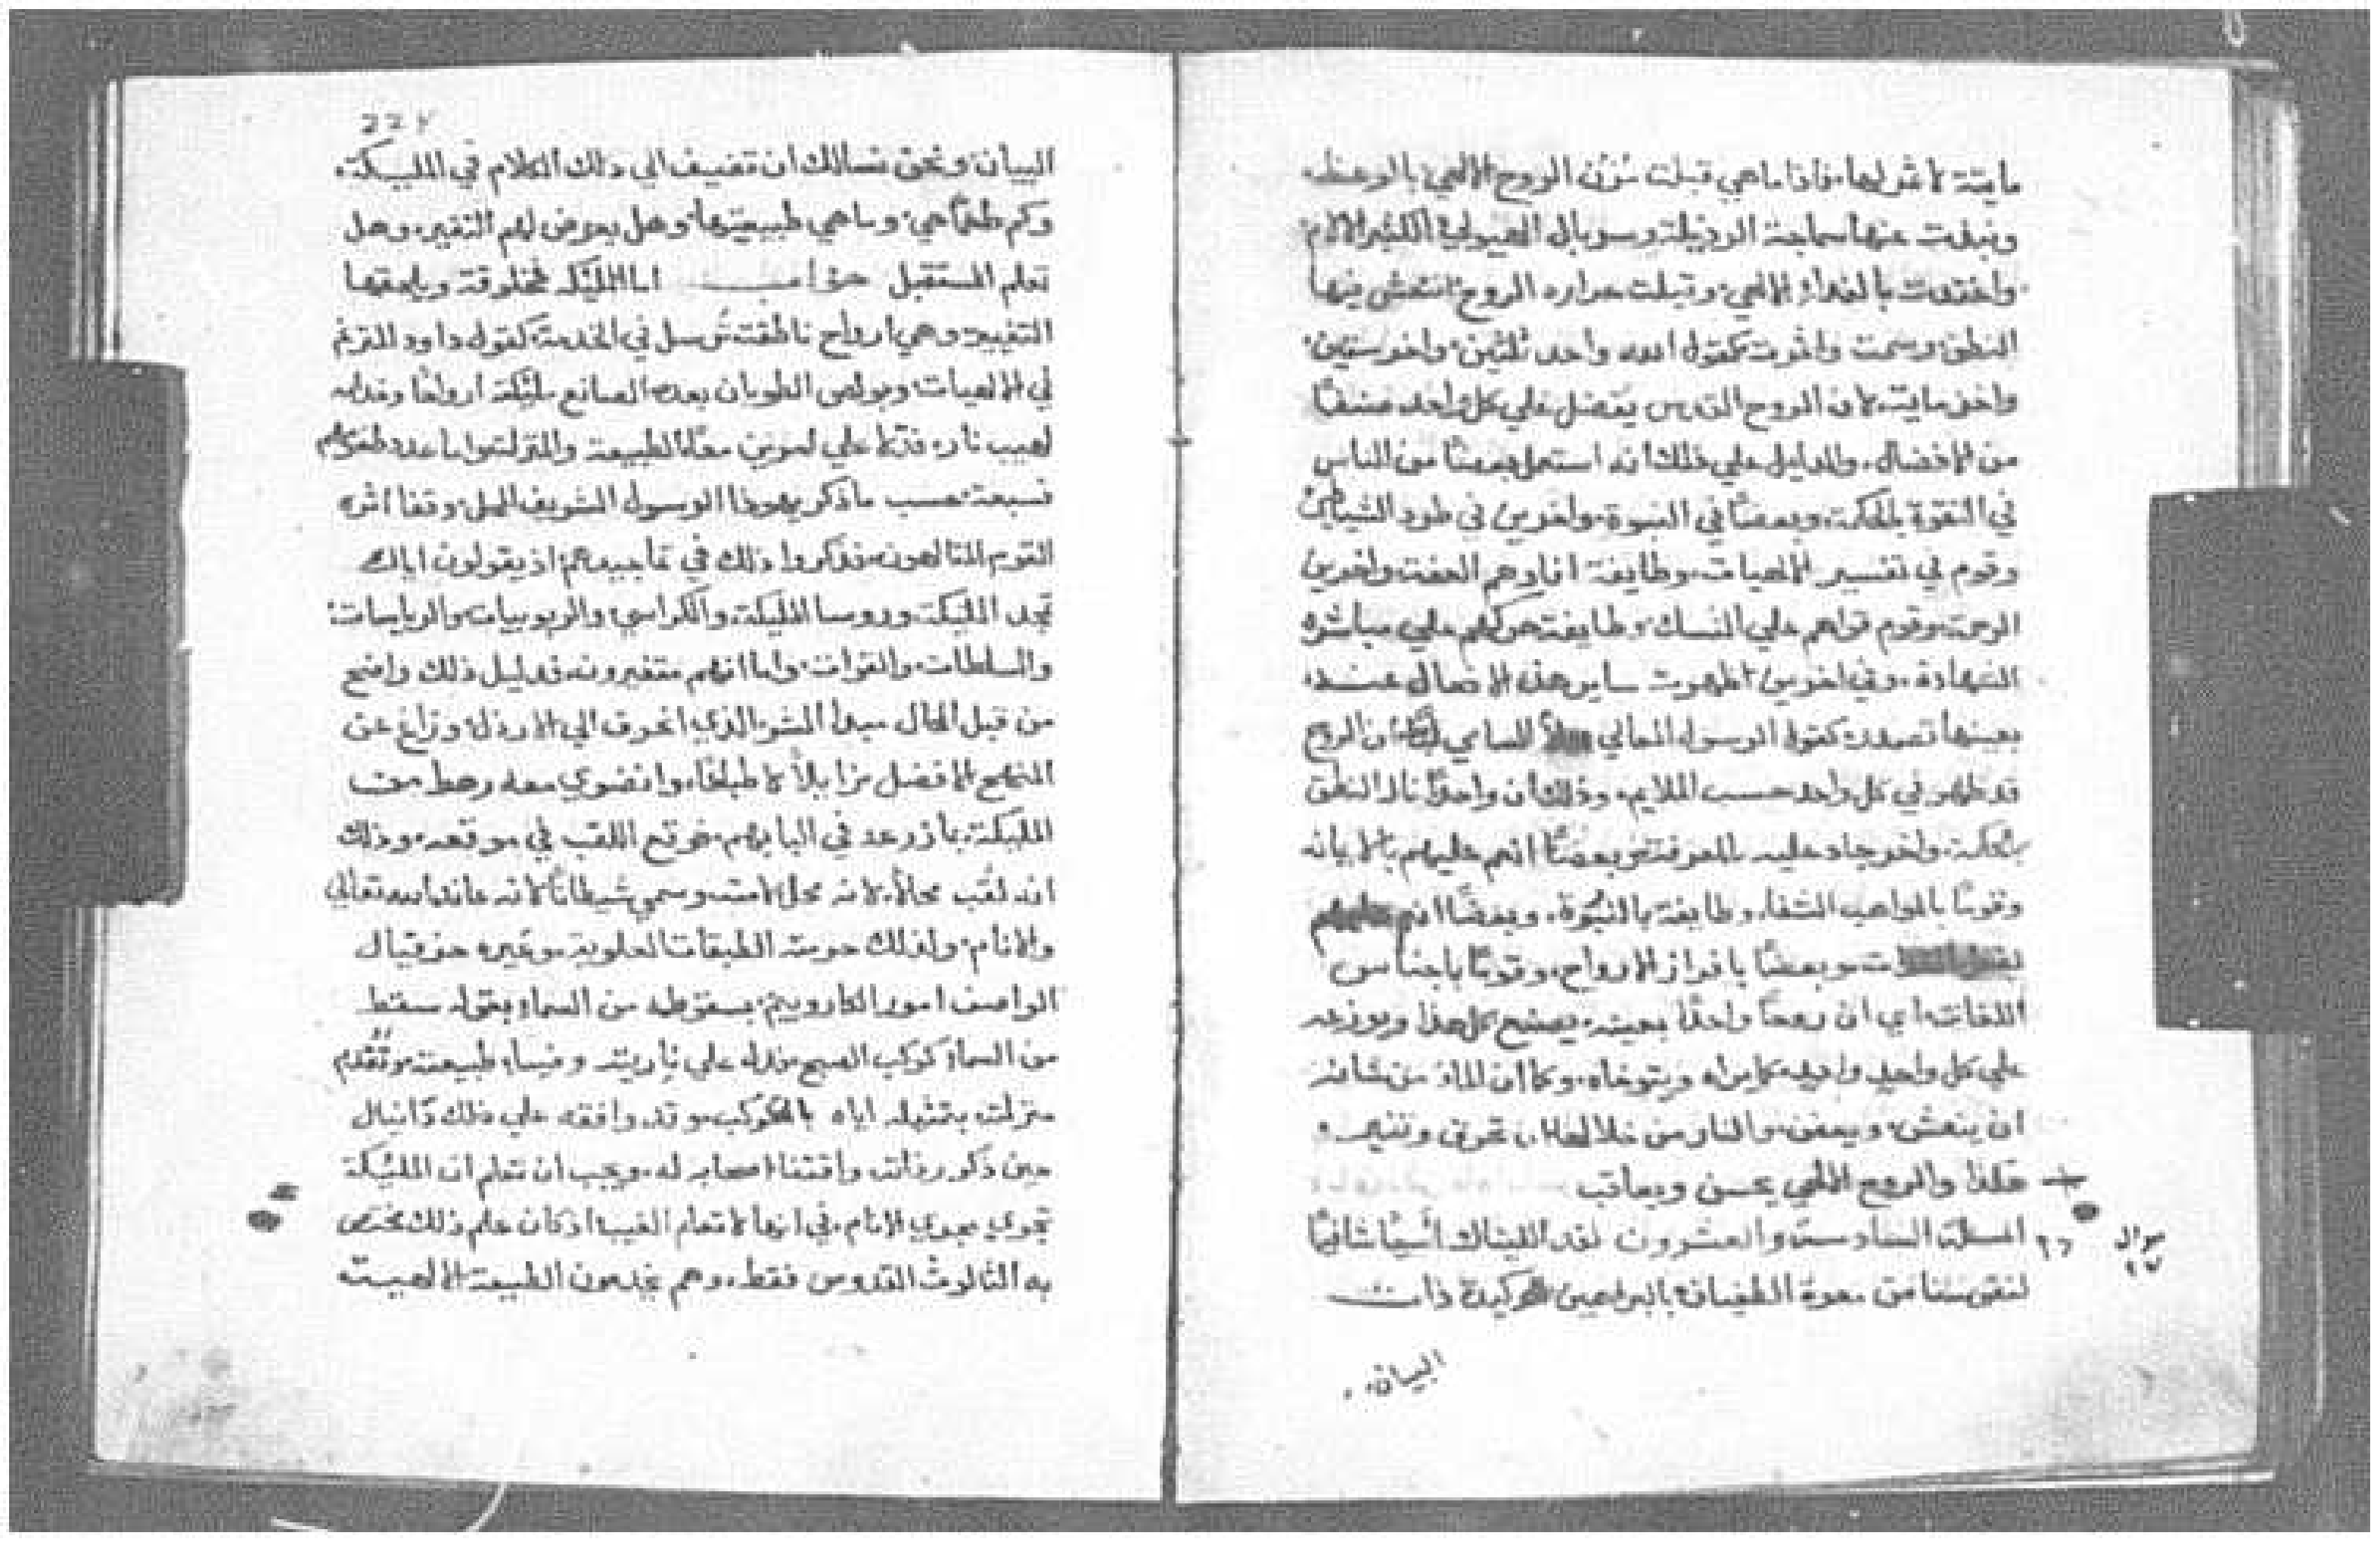 مايتة لا ثمر لها، فاذا ما هي قبلت مُزُن الروح الالهي بالوعظ،
ونبذت عنها سماجة الرذيلة وسربال الهيولي الكثير الالام
واغتدت بالغداء الالهي، وقبلت حراره الروح، انتعش فيها
النطق وسمت واثمرت كقول الله واحد ثلثين، واخر ستين،
واخر مايه، لان الروح القدس يفضل علي كل واحد صنفًا
من الافضال، والدليل علي ذلك انه استعمل بعضًا من الناس
في التفوة بالحكمة، وبعضًا في النبوة، واخرين في طرد الشياطين
وقوم في تفسير الالهيات، وطايفة افادهم العفة، واخرين
الرحمة، وقوم قواهم علي النسك، وطايفة حركهم علي مباشره
الشهادة، وفي اخرين اظهرت ساير هذه الافضال عنده
بعينها تصدر، كقول الرسول العالي السامي ان الروح
قد ظهر في كل واحد حسب الملايم، وذلك ان واحدًا نال النطق
بالحكمة، واخر جاد عليه بالمعرفة، وبعضًا انعم عليهم بالامانه
وقومًا بالمواهب الشفا، وطايفة بالنبُوة، وبعضًا انعم عليهم
وبعضًا بافراز الارواح، وقومًا باجناس
اللغات، اي ان روحًا واحدًا بعينه، يصنع كل هذا ويوزعه
علي كل واحدٍ واحدٍ، كما يراه ويتوخاه، وكما ان الماء من شانه
ان ينعش، ويعفن، والنار من خلالها ان تحرق وتنير،
هكذا والروح الالهي يحسن ويعاقب
سوال ٢٦ المسلة السادسة والعشرون لقد افيناك أسيًا شافيًا
لنفوسنا من معرة الطغيان بالبراهين الوكيدة ذات
البيان
227
البيان، ونحن نسالك ان تضيف الي ذلك الكلام في المليكة،
وكم طغمًا هي، وما هي طبيعتها، وهل يعرض لهم التغير، وهل
تعلم المستقبل جواب اما المليكه فمخلوقة ويلحقها
التغيير، وهي ارواح ناطقة تُرسل في الخدمة، كقول داود المترنم
في الالهيات، وبولص الطوبان بعده، الصانع مليكته ارواحًا وخدامه
لهيب نار، فدلا علي امرين معًا، الطبيعة والمنزلة، واما عدد طغوتهم
فسبعة، حسب ما ذكر يهوذا الرسول الشريف المحل، وقفا اثره
القوم المتالهون، فذكروا ذلك في تماجيدهم، اذ يقولون اياك
تمجد المليكة وروسا المليكة، والكراسي، والربوبيات، والرياسات،
والسلطات، والقوات، واما انهم متغيرون، فدليل ذلك واضح
من قبل المحال مبدا الشر، الذي انحرف الي الارذل، وزاغ عن
المنهج الافضل، مزايلاً لا طباعًا، وانضوي معه رهط من
المليكة،
انه لقُب محالاً، لانه محل لامته، وسمي شيطانًا، لانه عاند الله تعالي
والانام، ولذلك حرمته الطبقات العلوية، وعَيره حزقيال
الواصف امور الكاروبيم، بسقوطه من السماء بقوله سقط
من السماء كوكب الصبح، فدله علي ناريته وضياء طبيعته، وتُقدم
منزلته، بتمثيله اياه بالكوكب، وقد وافقه علي ذلك دَانيال
حين ذكر زلته، واقتنا اصحابه له، ويجب ان تعلم ان المليكة
تجري مجري الانام، في انها لا تعلم الغيب، اذ كان علم ذلك مختص
به الثالوث القدوس فقط، وهم يخدمون الطبيعة الالهية